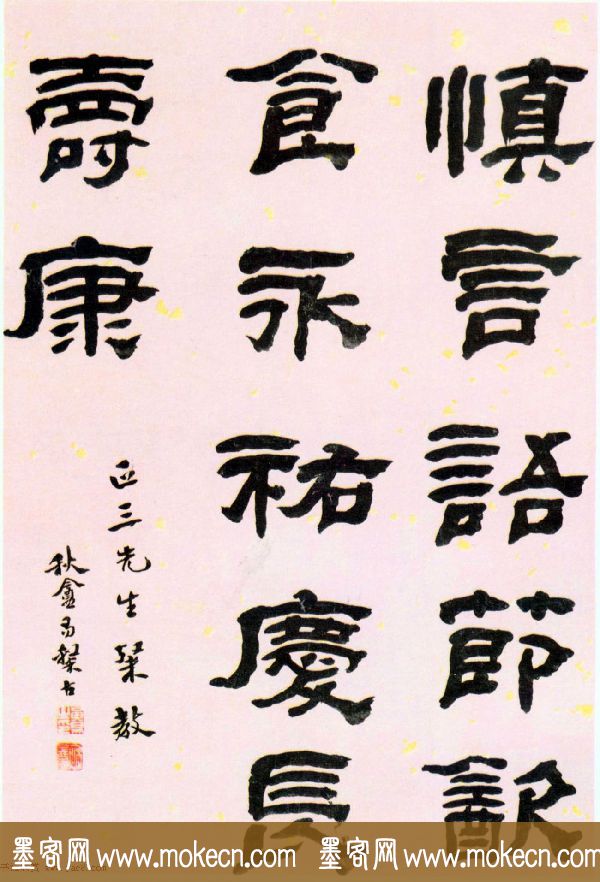 慎言語節飲
食永祐慶長
壽康
正三先生棐教
秋盦
墨客网 www.mokecn.com 墨客网 www.mokecn.com